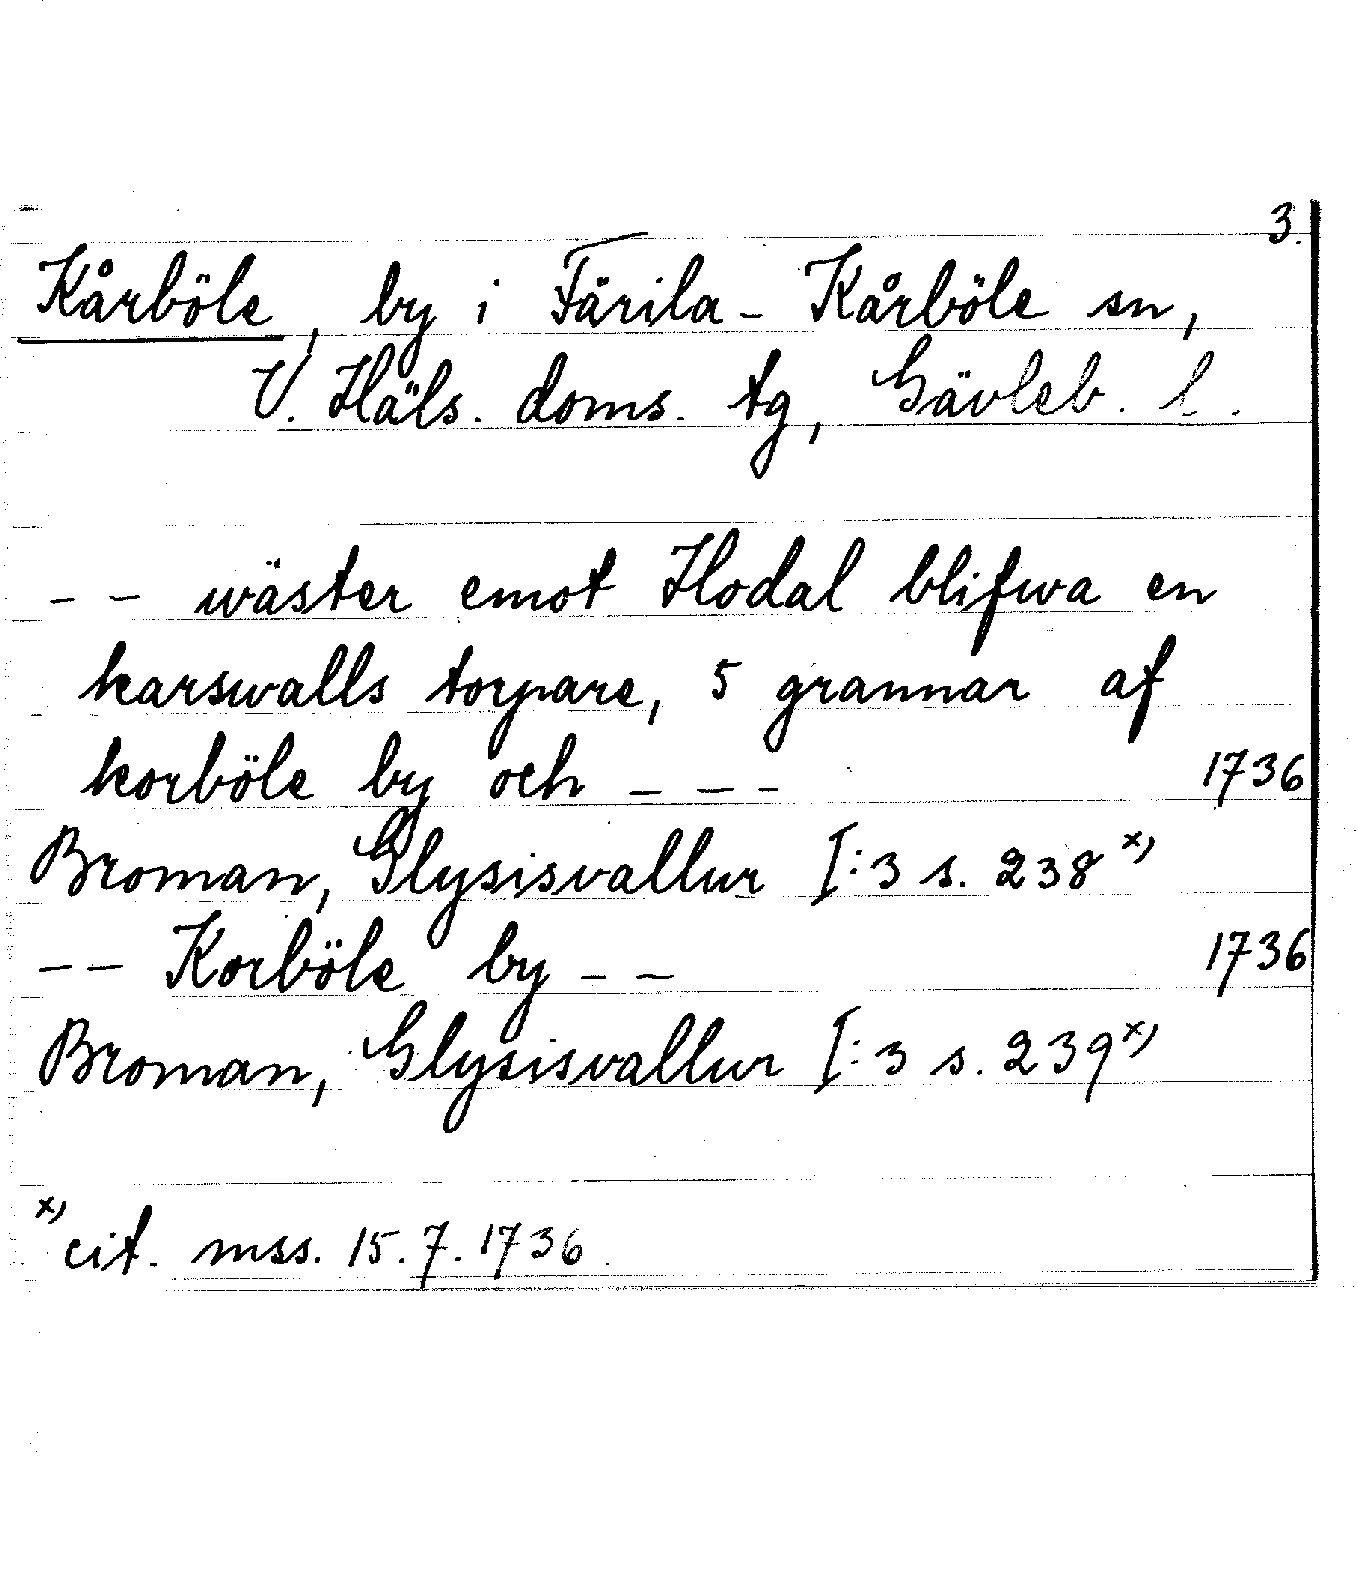 3.
Kårböle, by i Färila-Kårböle sn,
V. Häls. doms. tg, Gävleb. l.
-- wäster emot Hodal blifwa en
karswalls torpare, 5 grannar af
korböle by och --- 1736
Broman, Glysisvallur I:3 s. 238 x)
-- Korböle by -- 1736
Broman, Glysisvallur I:3 s. 239 x)
x) cit. mss. 15.7.1736.